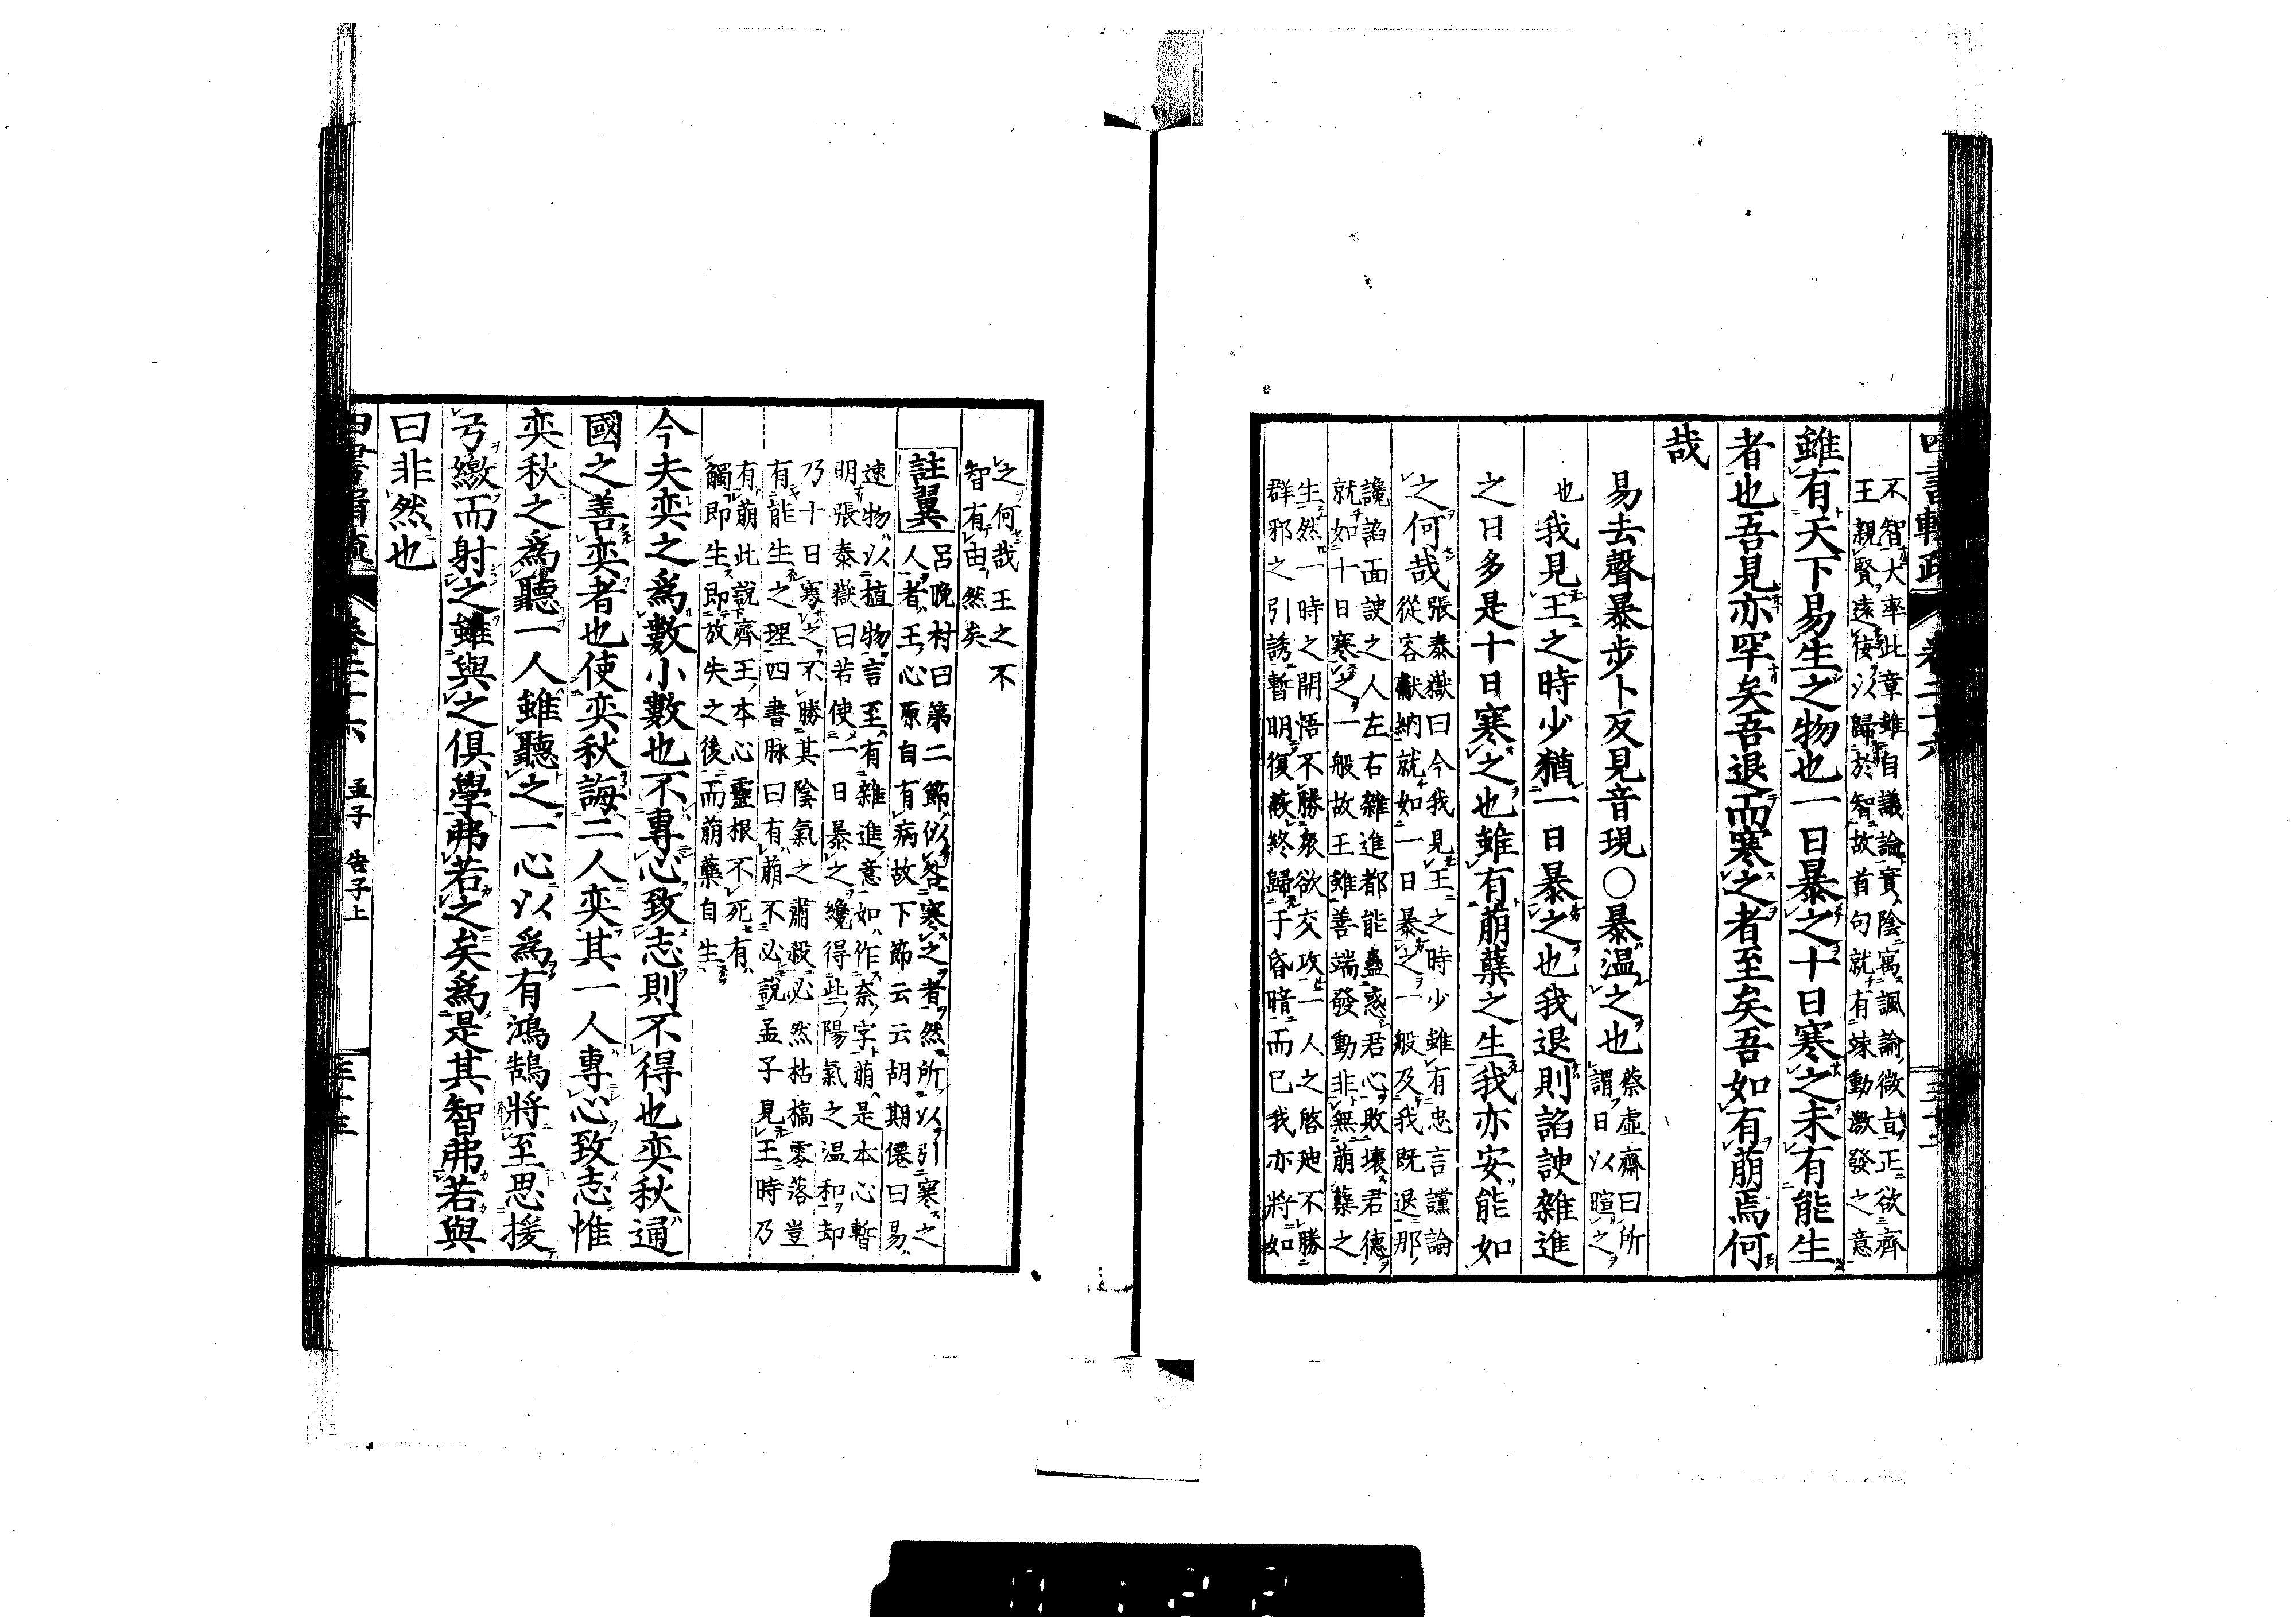 四書輯疏 卷二十六 三十二
不智大率此章雖自議論實陰寓諷諭微旨正欲齊
王親賢遠佞以歸於智故首句就有竦動激發之意
雖有天下易生之物也一日暴之十日寒之未有能生
者也吾見亦罕矣吾退而寒之者至矣吾如有萠焉何
哉
易去聲暴步卜反見音現○暴温之也
蔡虛齋曰所
謂日以暄之
也
我見王之時少猶一日暴之也我退則諂諛雜進
之日多是十日寒之也雖有萠蘖之生我亦安能如
之何哉
張泰嶽曰今我見王之時少雖有忠言讜論
從容獻納就如一日暴之一般及我既退那
讒諂面諛之人左右雜進都能蠱惑君心敗壞君德
就如十日寒之一般故王雖善端發動非無萠蘖之
生然一時之開悟不勝衆欲交攻一人之啓沃不勝
群邪之引誘暫明復蔽終歸于昏暗而已我亦將如
之何哉王之不
智有由然矣
註翼
呂晚村曰第二節似咎寒之者然所以引寒之
人者王心原自有病故下節云云胡期僊曰易
速物以植物言至有雜進意如作奈字萠是本心暫
明張泰嶽曰若使一日暴之纔得些陽氣之温和却
乃十日寒之不勝其陰氣之肅殺必然枯槁零落豈
有能生之理四書脉曰有萠不必說孟子見王時乃
有萠此說齊王本心靈根不死有
觸即生即放失之後而萠蘖自生
今夫奕之爲數小數也不專心致志則不得也奕秋通
國之善奕者也使奕秋誨二人奕其一人專心致志惟
奕秋之爲聽一人雖聽之一心以爲有鴻鵠將至思援
弓繳而射之雖與之俱學弗若之矣爲是其智弗若與
曰非然也
四書輯疏 卷二十六 孟子 告子上 三十三